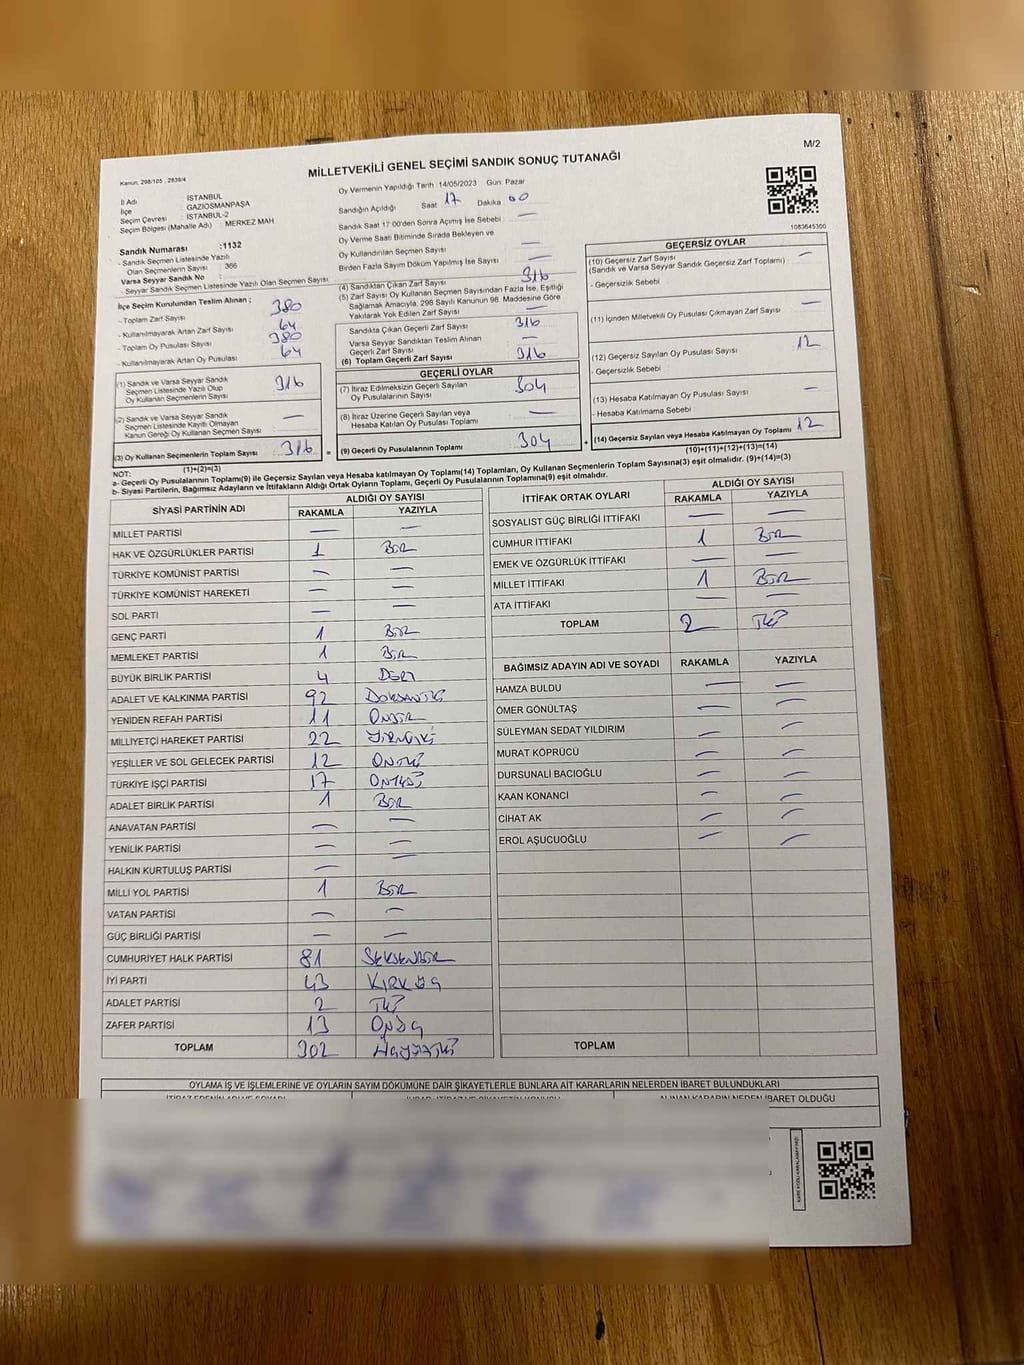 M/2
MİLLETVEKİLİ GENEL SEÇİMİ SANDIK SONUÇ TUTANAĞI
Kanun, 298/105 , 2839/4
İl Adı : İSTANBUL
İlçe : GAZİOSMANPAŞA
Seçim Çevresi : İSTANBUL-2
Seçim Bölgesi (Mahalle Adı) : MERKEZ MAH.
Sandık Numarası :1132
- Sandık Seçmen Listesinde Yazılı
Olan Seçmenlerin Sayısı : 366
Varsa Seyyar Sandık No :
- Seyyar Sandık Seçmen Listesinde Yazılı Olan Seçmen Sayısı :
İlçe Seçim Kurulundan Teslim Alınan ;
- Toplam Zarf Sayısı 380
- Kullanılmayarak Artan Zarf Sayısı 64
- Toplam Oy Pusulası 380
- Kullanılmayarak Artan Oy Pusulası 64
(1) Sandık ve Varsa Seyyar Sandık
Seçmen Listesinde Yazılı Olup
Oy Kullanan Seçmenlerin Sayısı 316
(2) Sandık ve Varsa Seyyar Sandık
Seçmen Listesinde Kayıtlı Olmayan
Kanun Gereği Oy Kullanan Seçmen Sayısı —
(3) Oy Kullanan Seçmenlerin Toplam Sayısı 316
(1)+(2)=(3)
Oy Vermenin Yapıldığı Tarih :14/05/2023 Gün: Pazar
Sandığın Açıldığı Saat 17 Dakika 00
Sandık Saat 17:00'den Sonra Açımış İse Sebebi : —
Oy Verme Saati Bitiminde Sırada Bekleyen ve
Oy Kullandırılan Seçmen Sayısı —
Birden Fazla Sayım Döküm Yapılmış İse Sayısı —
(4) Sandıktan Çıkan Zarf Sayısı 316
(5) Zarf Sayısı Oy Kullanan Seçmen Sayısından Fazla İse, Eşitliği
Sağlamak Amacıyla; 298 Sayılı Kanunun 98. Maddesine Göre
Yakılarak Yok Edilen Zarf Sayısı —
Sandıkta Çıkan Geçerli Zarf Sayısı 316
Varsa Seyyar Sandıktan Teslim Alınan
Geçerli Zarf Sayısı
(6) Toplam Geçerli Zarf Sayısı 316
GEÇERLİ OYLAR
(7) İtiraz Edilmeksizin Geçerli Sayılan
Oy Pusulalarının Sayısı 304
(8) İtiraz Üzerine Geçerli Sayılan veya
Hesaba Katılan Oy Pusulası Toplamı —
= (9) Geçerli Oy Pusulalarının Toplamı 304
1083645300
GEÇERSİZ OYLAR
(10) Geçersiz Zarf Sayısı
(Sandık ve Varsa Seyyar Sandık Geçersiz Zarf Toplamı) —
- Geçersizlik Sebebi
(11) İçinden Milletvekili Oy Pusulası Çıkmayan Zarf Sayısı —
(12) Geçersiz Sayılan Oy Pusulası Sayısı 12
- Geçersizlik Sebebi
(13) Hesaba Katılmayan Oy Pusulası Sayısı —
- Hesaba Katılmama Sebebi
+ (14) Geçersiz Sayılan veya Hesaba Katılmayan Oy Toplamı 12
(10)+(11)+(12)+(13)=(14)
NOT:
a- Geçerli Oy Pusulalarının Toplamı(9) ile Geçersiz Sayılan veya Hesaba katılmayan Oy Toplamı(14) Toplamları, Oy Kullanan Seçmenlerin Toplam Sayısına(3) eşit olmalıdır. (9)+(14)=(3)
b- Siyasi Partilerin, Bağımsız Adayların ve İttifakların Aldığı Ortak Oyların Toplamı, Geçerli Oy Pusulalarının Toplamına(9) eşit olmalıdır.
SİYASİ PARTİNİN ADI ALDIĞI OY SAYISI
RAKAMLA YAZIYLA
MİLLET PARTİSİ — —
HAK VE ÖZGÜRLÜKLER PARTİSİ 1 BİR
TÜRKİYE KOMÜNİST PARTİSİ — —
TÜRKİYE KOMÜNİST HAREKETİ — —
SOL PARTİ — —
GENÇ PARTİ 1 BİR
MEMLEKET PARTİSİ 1 BİR
BÜYÜK BİRLİK PARTİSİ 4 DÖRT
ADALET VE KALKINMA PARTİSİ 92 DOKSANİKİ
YENİDEN REFAH PARTİSİ 11 ONBİR
MİLLİYETÇİ HAREKET PARTİSİ 22 YİRMİİKİ
YEŞİLLER VE SOL GELECEK PARTİSİ 12 ONİKİ
TÜRKİYE İŞÇİ PARTİSİ 17 ONYEDİ
ADALET BİRLİK PARTİSİ 1 BİR
ANAVATAN PARTİSİ — —
YENİLİK PARTİSİ — —
HALKIN KURTULUŞ PARTİSİ — —
MİLLİ YOL PARTİSİ 1 BİR
VATAN PARTİSİ — —
GÜÇ BİRLİĞİ PARTİSİ — —
CUMHURİYET HALK PARTİSİ 81 SEKSENBİR
İYİ PARTİ 43 KIRKÜÇ
ADALET PARTİSİ 2 İKİ
ZAFER PARTİSİ 13 ONÜÇ
TOPLAM 302 ÜÇYÜZİKİ
İTTİFAK ORTAK OYLARI ALDIĞI OY SAYISI
RAKAMLA YAZIYLA
SOSYALİST GÜÇ BİRLİĞİ İTTİFAKI — —
CUMHUR İTTİFAKI 1 BİR
EMEK VE ÖZGÜRLÜK İTTİFAKI — —
MİLLET İTTİFAKI 1 BİR
ATA İTTİFAKI — —
TOPLAM 2 İKİ
BAĞIMSIZ ADAYIN ADI VE SOYADI RAKAMLA YAZIYLA
HAMZA BULDU — —
ÖMER GÖNÜLTAŞ — —
SÜLEYMAN SEDAT YILDIRIM — —
MURAT KÖPRÜCÜ — —
DURSUNALİ BACIOĞLU — —
KAAN KONANCİ — —
CİHAT AK — —
EROL AŞUCUOĞLU — —
TOPLAM
OYLAMA İŞ VE İŞLEMLERİNE VE OYLARIN SAYIM DÖKÜMÜNE DAİR ŞİKAYETLERLE BUNLARA AİT KARARLARIN NELERDEN İBARET BULUNDUKLARI
ALINAN KARARIN NEDEN İBARET OLDUĞU